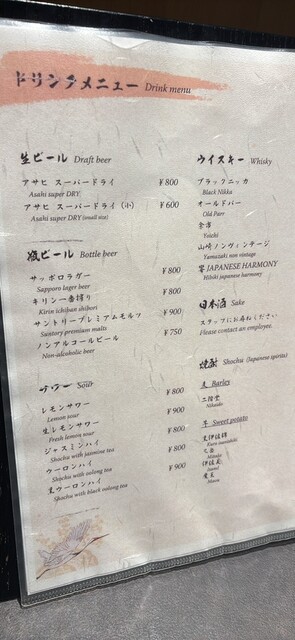 ドリンクメニュー Drink menu
生ビール Draft beer
アサヒ スーパードライ ¥800
Asahi super DRY
アサヒ スーパードライ (小) ¥600
Asahi super DRY (small size)
瓶ビール Bottle beer
サッポロラガー ¥800
Sapporo lager beer
キリン一番搾り ¥800
Kirin ichiban shibori
サントリープレミアムモルツ ¥900
Suntory premium malts
ノンアルコールビール ¥750
Non-alcoholic beer
サワー Sour
レモンサワー ¥800
Lemon sour
生レモンサワー ¥900
Fresh lemon sour
ジャスミンハイ ¥800
Shochu with jasmine tea
ウーロンハイ ¥800
Shochu with oolong tea
黒ウーロンハイ ¥900
Shochu with black oolong tea
ウイスキー Whisky
ブラックニッカ
Black Nikka
オールドパー
Old Parr
余市
Yoichi
山崎ノンヴィンテージ
Yamazaki non vintage
響 JAPANESE HARMONY
Hibiki japanese harmony
日本酒 Sake
スタッフにお尋ねください
Please contact an employee.
焼酎 Shochu (Japanese spirits)
麦 Barley
二階堂
Nikaido
芋 Sweet potato
黒伊佐錦
Kuro isanishiki
伊佐美
Isami